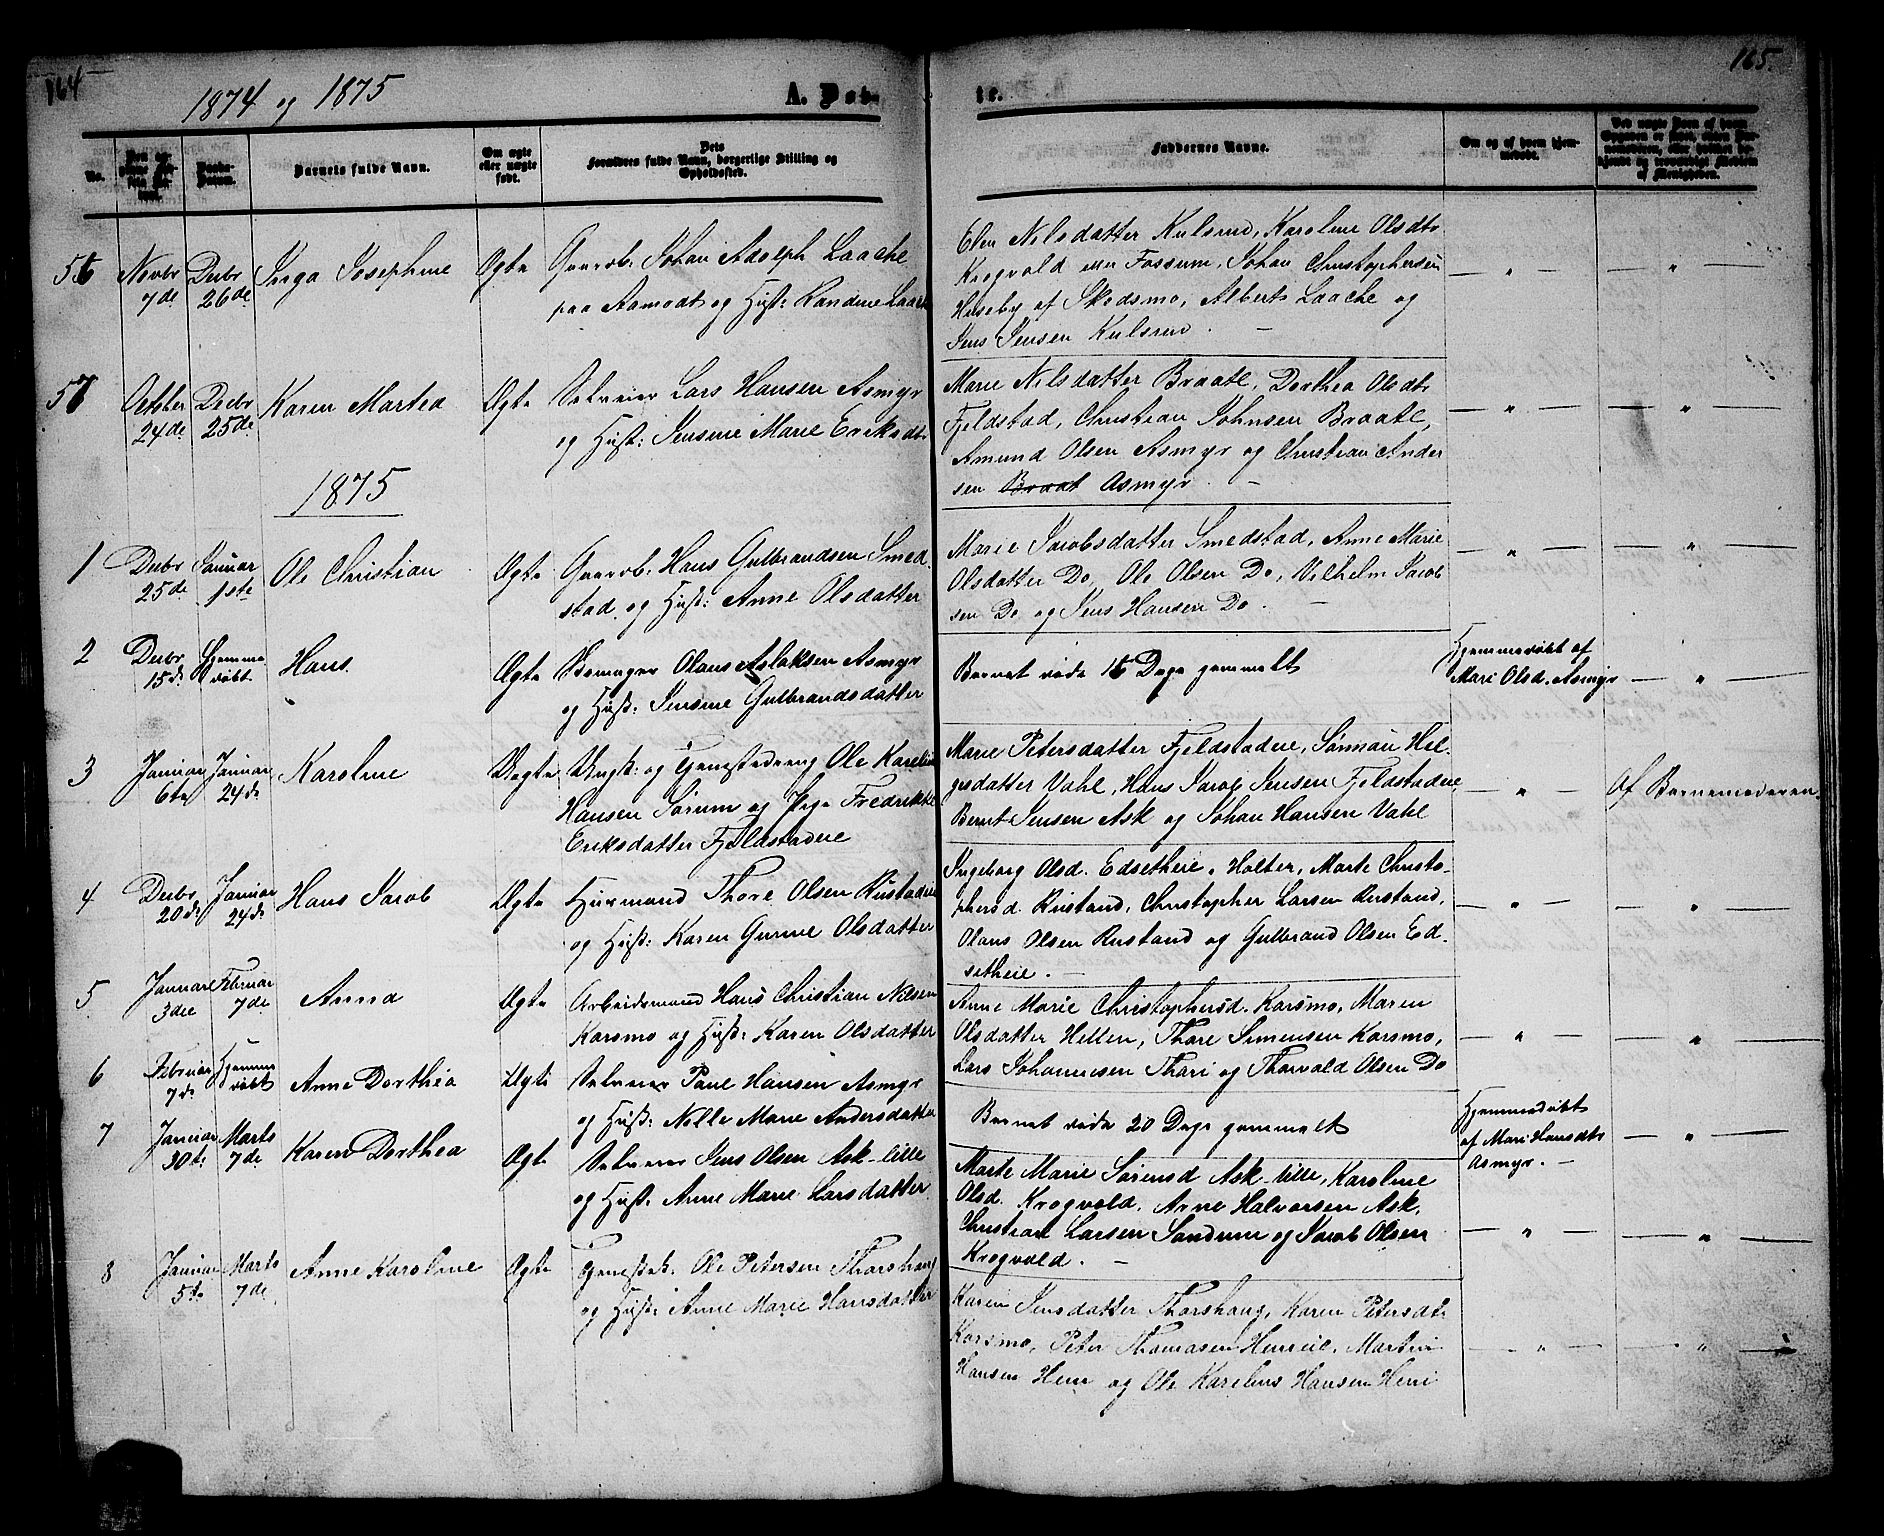 164
1874 og 1875
A. Døb-
te.
165.
No.
Barnets fulde Navn.
Om ægte eller uægte født.
Dets Forældres fulde Navn, borgerlige Stilling og Opholdssted.
Faddernes Navne.
Om og af hvem hjemmedøbt.
56 Novbr 7de Decbr 26de Inga Josephine Ægte Gaardb. Johan Adolph Laache
paa Aamodt og Hust: Randine Laache
Elen Nilsdatter Kulsrud, Karoline Olsdtr
Krogvold eller Fossum, Johan Christophersen
Huseby af Skedsmo, Albert Laache og
Jens Jensen Kulsrud. —
57 October 24de Decbr 25de Karen Martea Ægte Selveier Lars Hansen Asmyr
og Hust: Jensine Marie Eriksdtr
Marie Nilsdatter Braate, Dorthea Olsdtr
Fjeldstad, Christian Johnsen Braate,
Amund Olsen Asmyr og Christian Ander
sen Braat Asmyr. —
1875
1 Decbr 25de Januar 1ste Ole Christian Ægte Gaardb. Hans Gulbrandsen Smed-
stad og Hust: Anne Olsdatter
Marie Jacobsdatter Smedstad, Anne Marie
Olsdatter Do, Ole Olsen Do, Vilhelm Jacob
sen Do og Jens Hansen Do. —
2 Decbr 15de Hjemme døbt Hans. Ægte Skomager Olaus Aslaksen Asmyr
og Hust: Jensine Gulbrandsdatter
Barnet døde 16 Dage gammelt
Hjemmedøbt af
Mari Olsd. Asmyr
3 Januar 6te Januar 24de Karoline Uægte Ungk: og Tjenestedreng Ole Karelius
Hansen Sørum og Pige Fredrikke
Eriksdatter Fjeldstadeie
Marie Petersdatter Fjeldstadeie, Sønnau Hel-
gesdatter Vahl, Hans Jacob Jensen Fjeldstadeie
Bernt Jensen Ask og Johan Hansen Vahl
Af Barnemoderen.
4 Decbr 20de Januar 24de Hans Jacob Ægte Huusmand Thore Olsen Rustadeie
og Hust: Karen Gurine Olsdatter
Ingeborg Olsd. Edsetheie, Holter, Marte Christo-
phersd. Rustand, Christopher Larsen Rustand,
Olaus Olsen Rustand og Gulbrand Olsen Ed-
setheie. —
5 Januar 3die Februar 7de Anna Ægte Arbeidsmand Hans Christian Nilsen
Karsmo og Hust: Karen Olsdatter
Anne Marie Christophersd. Karsmo, Maren
Olsdatter Hellen, Thore Simensen Karsmo,
Lars Johannesen Thori og Thorvald Olsen Do
6 Februar 7de Hjemme døbt Anne Dorthea Ægte Selveier Paul Hansen Asmyr
og Hust: Nille Marie Andersdatter
Barnet døde 20 Dage gammelt
Hjemmedøbt
af Mari Hansdtr
Asmyr. —
7 Januar 30te Marts 7de Karen Dorthea Ægte Selveier Jens Olsen Ask-lille
og Hust. Anne Marie Larsdatter
Marte Marie Sørensd Ask-lille, Karoline
Olsd. Krogvold, Arne Halvorsen Ask,
Christian Larsen Sandum og Jacob Olsen
Krogvold. —
8 Januar 5te Marts 7de Anne Karoline Ægte Tjenestek. Ole Petersen Thorshaug
og Hust: Anne Marie Hansdatter
Karen Jensdatter Thorshaug, Karen Petersdt.
Karsmo, Peter Thomasen Henrie, Martin
Hansen Hem og Ole Karelius Hansen Henri